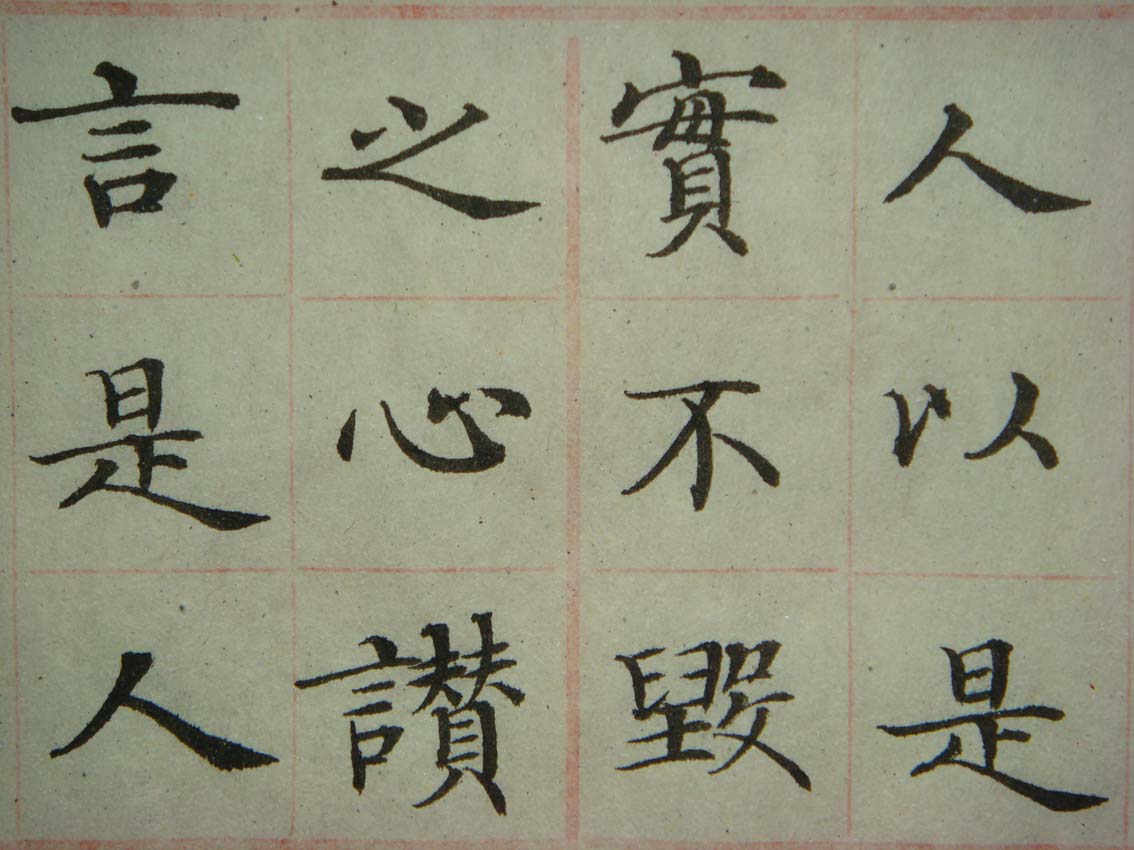 人以是
實不毀
之心讃
言是人